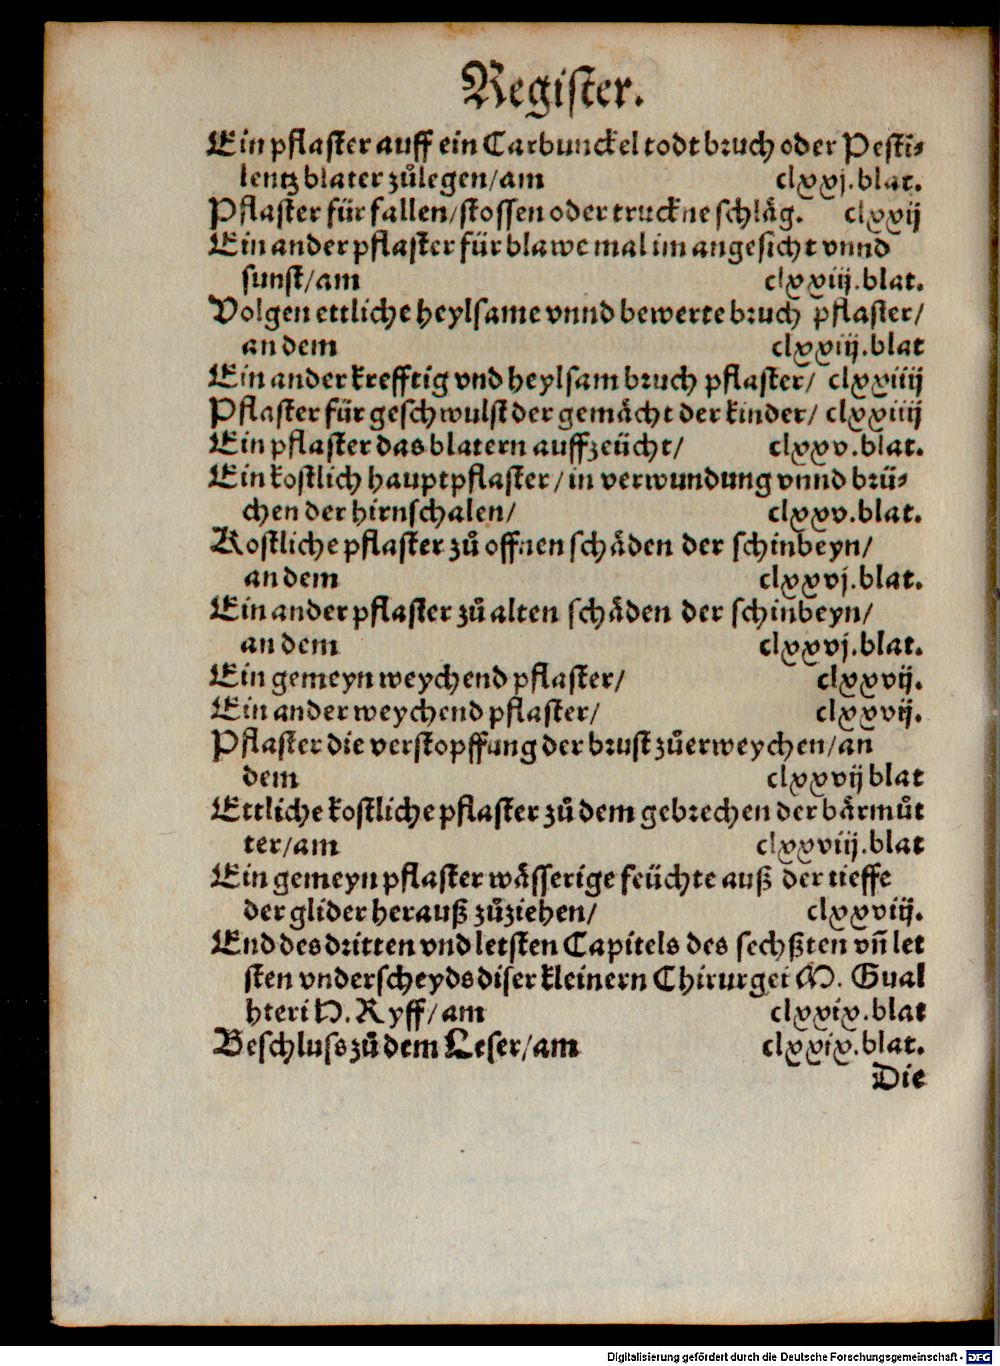 Register.
Ein pflaster auff ein Carbunckel todtbruch oder Pesti⸗
lentz blater zůlegen/am clxxj.blat.
Pflaster für fallen/stossen oder truckne schläg. clxxij
Ein ander pflaster für blawe mal im angesicht vnnd
sunst/am clxxiij.blat.
Volgen ettliche heylsame vnnd bewerte bruch pflaster/
an dem clxxiij.blat
Ein ander krefftig vnd heylsam bruch pflaster/ clxxiiij
Pflaster für geschwulst der gemächt der kinder/ clxxiiij
Ein pflaster das blatern auffzeücht/ clxxv.blat.
Ein kostlich hauptpflaster/in verwundung vnnd brü⸗
chen der hirnschalen/ clxxv.blat.
Kostliche pflaster zů offnen schäden der schinbeyn/
an dem clxxvj.blat.
Ein ander pflaster zů alten schäden der schinbeyn/
an dem clxxvj.blat.
Ein gemeyn weychend pflaster/ clxxvij.
Ein ander weychend pflaster/ clxxvij.
Pflaster die verstopffung der brust zůerweychen/an
dem clxxvij blat
Ettliche kostliche pflaster zů dem gebrechen der bärmůt
ter/am clxxviij.blat
Ein gemeyn pflaster wässerige feüchte auß der tieffe
der glider herauß zůziehen/ clxxviij.
End des dritten vnd letsten Capitels des sechßten vn̄ let
sten vnderscheyds diser kleinern Chirurgei M. Gual
hteri H. Ryff/am clxxix.blat
Beschluss zů dem Leser/am clxxix.blat.
Die
Digitalisierung gefördert durch die Deutsche Forschungsgemeinschaft - DFG